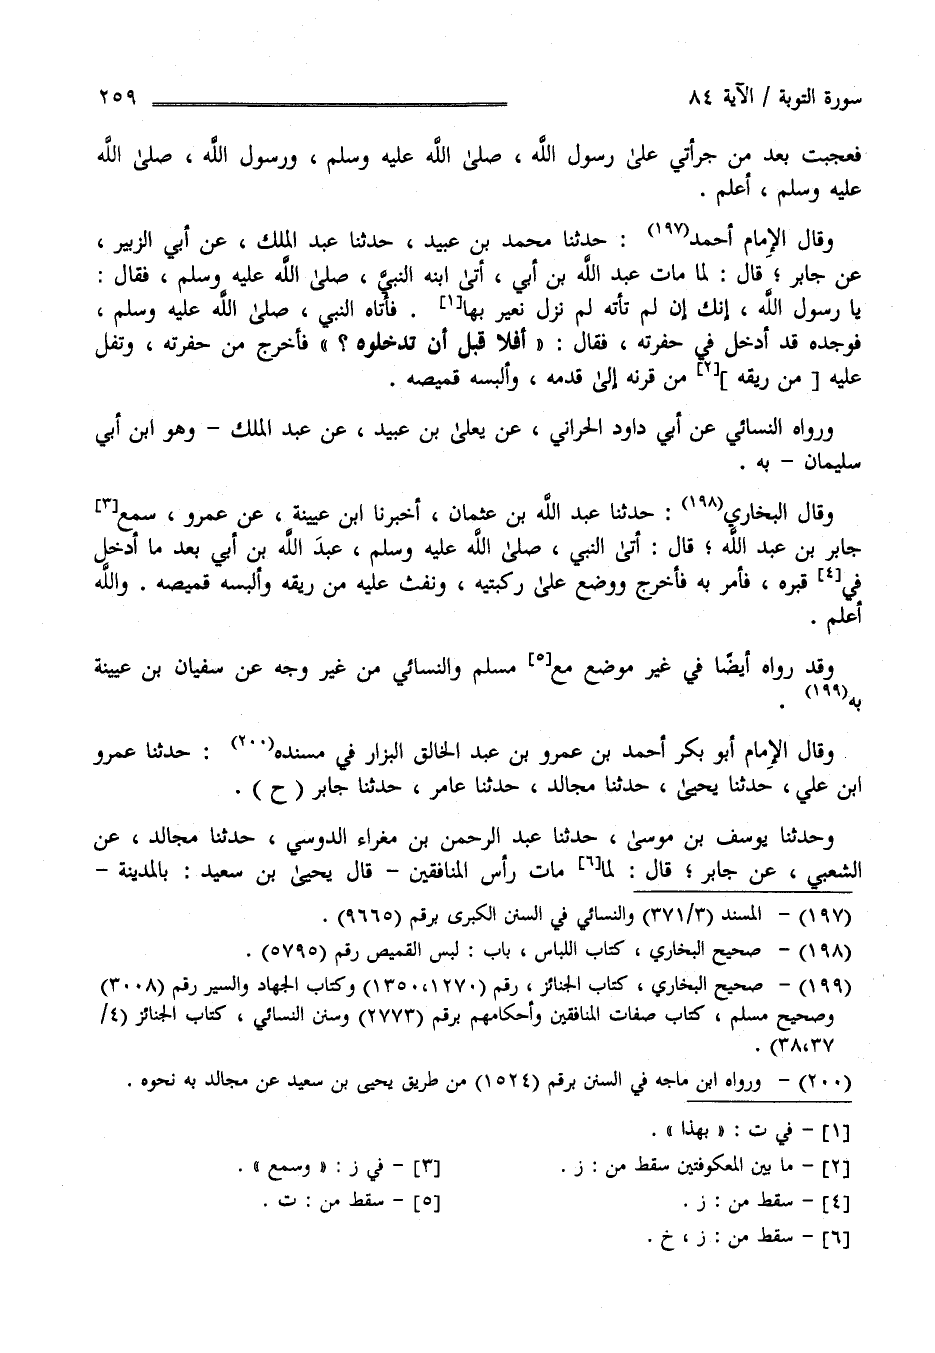 سورة التوبة / الآية ٨٤ ٢٥٩
فعجبت بعد من جرأتي علىٰ رسول اللَّه ، صلىٰ اللَّه عليه وسلم ، ورسول اللَّه ، صلىٰ اللَّه
عليه وسلم ، أعلم .
وقال الإمام أحمد(١٩٧) : حدثنا محمد بن عبيد ، حدثنا عبد الملك ، عن أبي الزبير ،
عن جابر ؛ قال : لما مات عبد اللَّه بن أبي ، أتىٰ ابنه النبيَّ ، صلىٰ اللَّه عليه وسلم ، فقال :
يا رسول اللَّه ، إنك إن لم تأته لم نزل نعير بها[١] . فأتاه النبي ، صلىٰ اللَّه عليه وسلم ،
فوجده قد أدخل في حفرته ، فقال : « أفلا قبل أن تدخلوه ؟ » فأخرج من حفرته ، وتفل
عليه [ من ريقه ][٢] من قرنه إلىٰ قدمه ، وألبسه قميصه .
ورواه النسائي عن أبي داود الحراني ، عن يعلىٰ بن عبيد ، عن عبد الملك – وهو ابن أبي
سليمان – به .
وقال البخاري(١٩٨) : حدثنا عبد اللَّه بن عثمان ، أخبرنا ابن عيينة ، عن عمرو ، سمع[٣]
جابر بن عبد اللَّه ؛ قال : أتىٰ النبي ، صلىٰ اللَّه عليه وسلم ، عبدَ اللَّه بن أبي بعد ما أدخل
في[٤] قبره ، فأمر به فأخرج ووضع علىٰ ركبتيه ، ونفث عليه من ريقه وألبسه قميصه . واللَّه
أعلم .
وقد رواه أيضًا في غير موضع مع[٥] مسلم والنسائي من غير وجه عن سفيان بن عيينة
به(١٩٩) .
وقال الإمام أبو بكر أحمد بن عمرو بن عبد الخالق البزار في مسنده(٢٠٠) : حدثنا عمرو
ابن علي ، حدثنا يحيىٰ ، حدثنا مجالد ، حدثنا عامر ، حدثنا جابر ( ح ) .
وحدثنا يوسف بن موسىٰ ، حدثنا عبد الرحمن بن مغراء الدوسي ، حدثنا مجالد ، عن
الشعبي ، عن جابر ؛ قال : لما[٦] مات رأس المنافقين – قال يحيىٰ بن سعيد : بالمدينة –
(١٩٧) – المسند (٣٧١/٣) والنسائي في السنن الكبرى برقم (٩٦٦٥) .
(١٩٨) – صحيح البخاري ، كتاب اللباس ، باب : لبس القميص رقم (٥٧٩٥) .
(١٩٩) – صحيح البخاري ، كتاب الجنائز ، رقم (١٣٥٠،١٢٧٠) وكتاب الجهاد والسير رقم (٣٠٠٨)
وصحيح مسلم ، كتاب صفات المنافقين وأحكامهم برقم (٢٧٧٣) وسنن النسائي ، كتاب الجنائز (٤/
٣٨،٣٧) .
(٢٠٠) – ورواه ابن ماجه في السنن برقم (١٥٢٤) من طريق يحيى بن سعيد عن مجالد به نحوه .
[١] – في ت : « بهذا » .
[٢] – ما بين المعكوفتين سقط من : ز . [٣] – في ز : « وسمع » .
[٤] – سقط من : ز . [٥] – سقط من : ت .
[٦] – سقط من : ز ، خ .